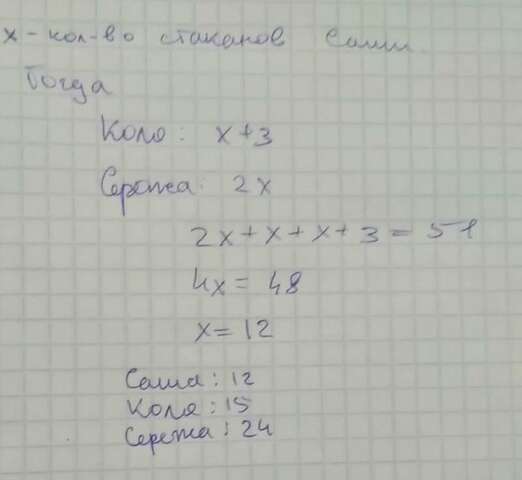 x - кол-во стаканов Саши
Тогда
Коля: x+3
Сережа: 2x
2x + x + x + 3 = 51
4x = 48
x = 12
Саша: 12
Коля: 15
Сережа: 24